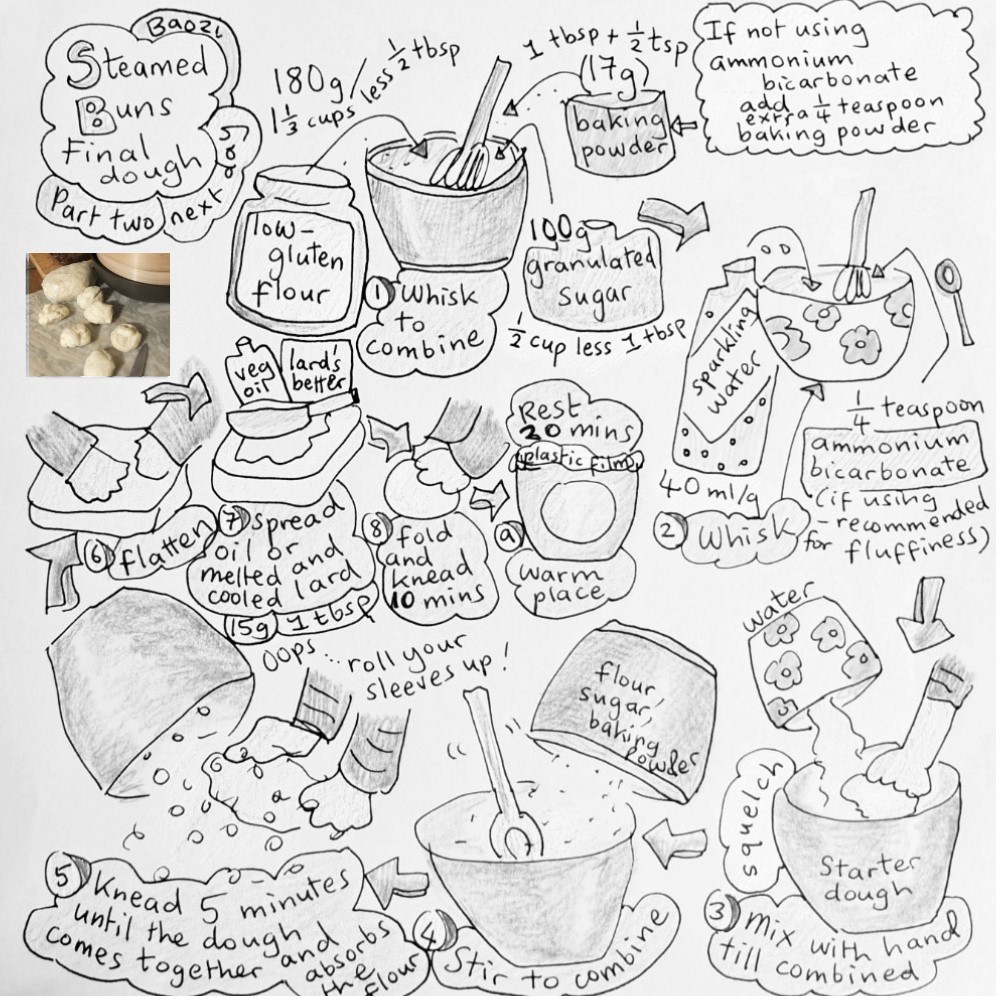 Baozi
Steamed
Buns
Final
dough
Part two next day
180g/
1 1/3 cups less 1/2 tbsp
1 tbsp + 1/2 tsp
(17g)
baking
powder
If not using
ammonium
bicarbonate
add
extra 1/4 teaspoon
baking powder
low-
gluten
flour
① Whisk
to
combine
100g
granulated
sugar
1/2 cup less 1 tbsp
sparkling
water
40ml/g
1/4 teaspoon
ammonium
bicarbonate
(if using
- recommended
for fluffiness)
② Whisk
water
squelch
Starter
dough
③ Mix with hand
till combined
flour,
sugar,
baking
powder
④ Stir to combine
Oops... roll your
sleeves up!
⑤ Knead 5 minutes
until the dough
comes together and
absorbs
the
flour
⑥ flatten
veg
oil
lard's
better
⑦ spread
oil or
melted and
cooled lard
15g 1 tbsp
⑧ fold
and
knead
10 mins
Rest
30 mins
plastic film
⑨
warm
place